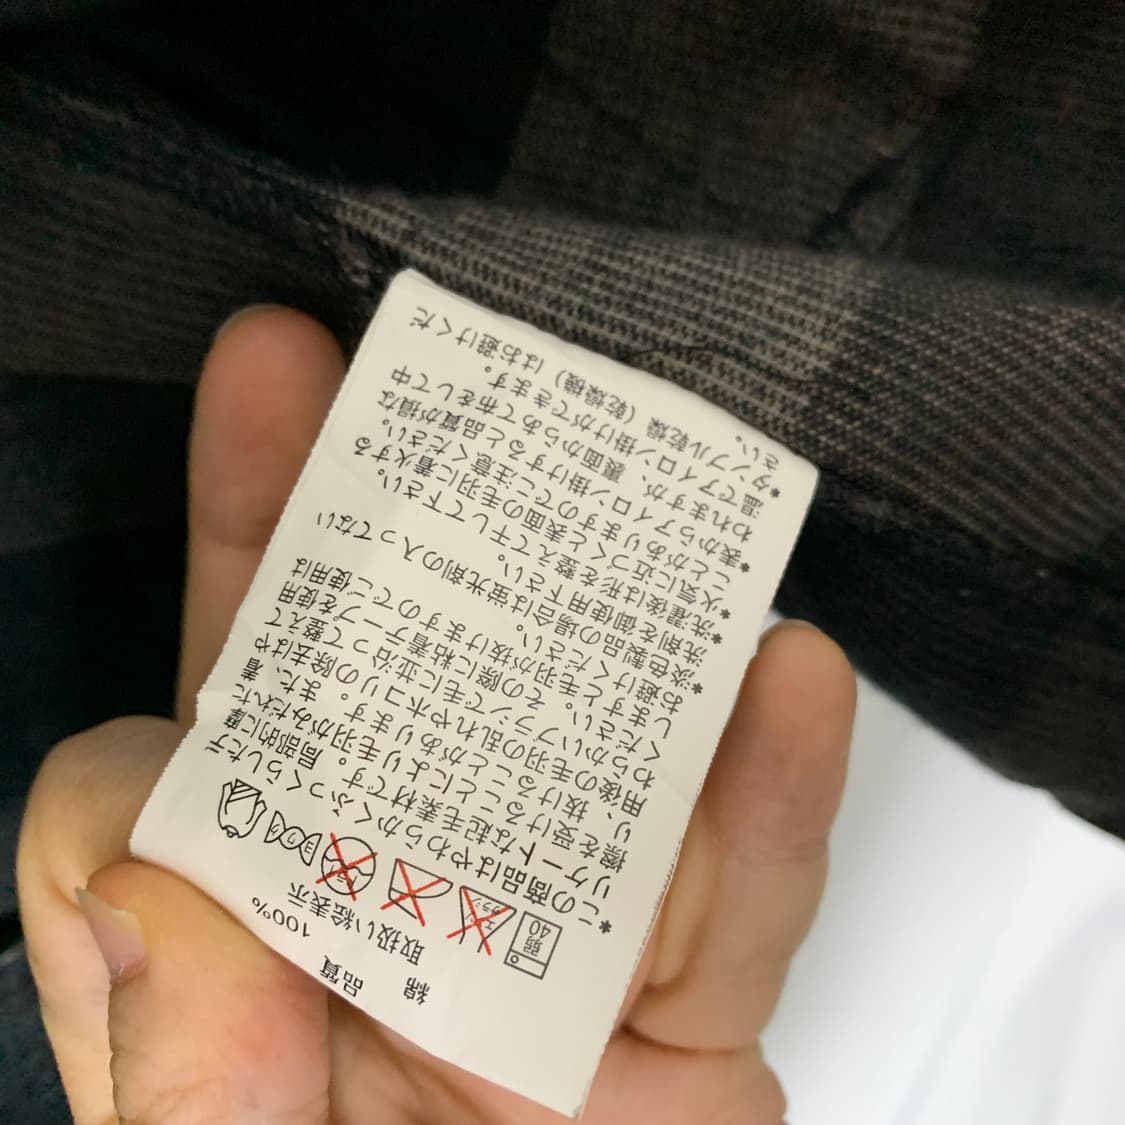 品質
綿 100%
取扱い絵表示
弱
40
エンソ
サラシ
ドライ
ヨワク
*この商品はやわらかくふっくらしたデ
リケートな起毛素材です。局部的に摩
擦を受けることにより毛羽がみだれた
り、抜けることがあります。また、着
用後の毛羽の乱れやホコリの除去はや
わらかいブラシで毛に並沿って整えて
ください。その際に粘着テープを使用
しますと毛羽が抜けますのでご使用は
お避けください。
*淡色製品の場合は蛍光剤の入ってない
洗剤を御使用下さい。
*洗濯後は形を整えて干して下さい
*火気に近づくと表面の毛羽に着火する
ことがありますのでご注意ください。
*表からアイロン掛けすると品質が損な
われますが、裏面からあて布をして中
温でアイロン掛けができます。
*タンブル乾燥(乾燥機)はお避けくだ
さい。